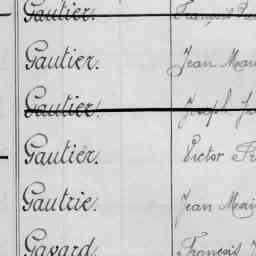 Gautier. François
Gautier. Jean Mari
Gautier. Joseph
Gautier. Victor
Gautrie. Jean Mari
Gavard. François